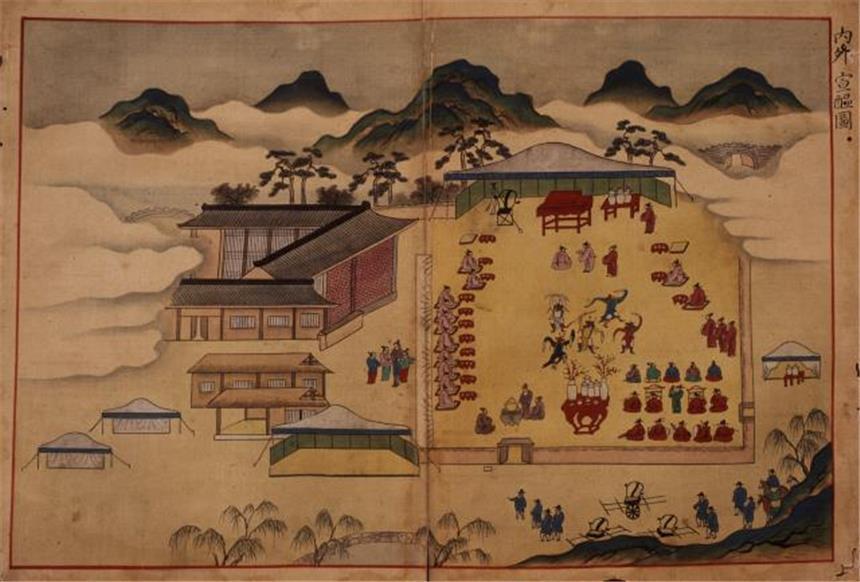 内外宣醞圖